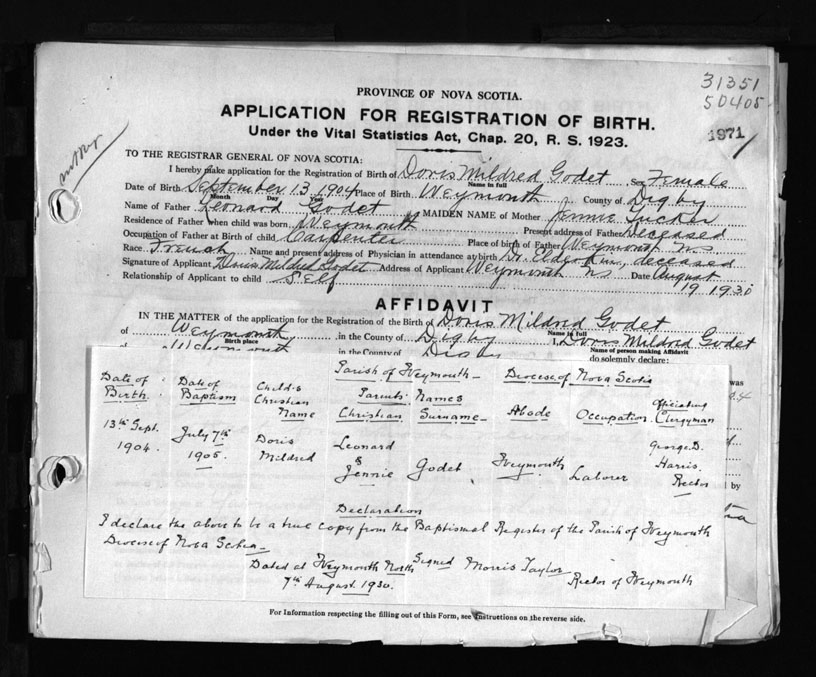 31351
50405
1971
PROVINCE OF NOVA SCOTIA.
APPLICATION FOR REGISTRATION OF BIRTH.
Under the Vital Statistics Act, Chap. 20, R. S. 1923.
TO THE REGISTRAR GENERAL OF NOVA SCOTIA:
I hereby make application for the Registration of Birth of Doris Mildred Godet Sex Female
Name in full
Date of Birth September 13 1904 Place of Birth Weymouth County of Digby
Month Day Year
Name of Father Leonard Godet MAIDEN NAME of Mother Jennie Tucker
Residence of Father when child was born Weymouth Present address of Father Deceased
Occupation of Father at Birth of child Carpenter Place of birth of Father Weymouth N.S
Race French Name and present address of Physician in attendance at birth Dr. Elderkin, deceased
Signature of Applicant Doris Mildred Godet Address of Applicant Weymouth NS Date August
Relationship of Applicant to child Self 19 1930
AFFIDAVIT
IN THE MATTER of the application for the Registration of the Birth of Doris Mildred Godet
Name in full
of Weymouth in the County of Digby I, Doris Mildred Godet
Birth place Name of person making Affidavit
of Weymouth in the County of Digby do solemnly declare:
Parish of Weymouth Diocese of Nova Scotia
Date of Birth. Date of Baptism Child's Christian Name Parents' Names Christian Surname Abode Occupation Officiating Clergyman
13th Sept. 1904. July 7th 1905. Doris Mildred Leonard & Jennie Godet Weymouth Laborer George D. Harris Rector
Declaration
I declare the above to be a true copy from the Baptismal Register of the Parish of Weymouth
Diocese of Nova Scotia
Dated at Weymouth North Signed Morris Taylor
7th August 1930. Rector of Weymouth
For Information respecting the filling out of this Form, see Instructions on the reverse side.